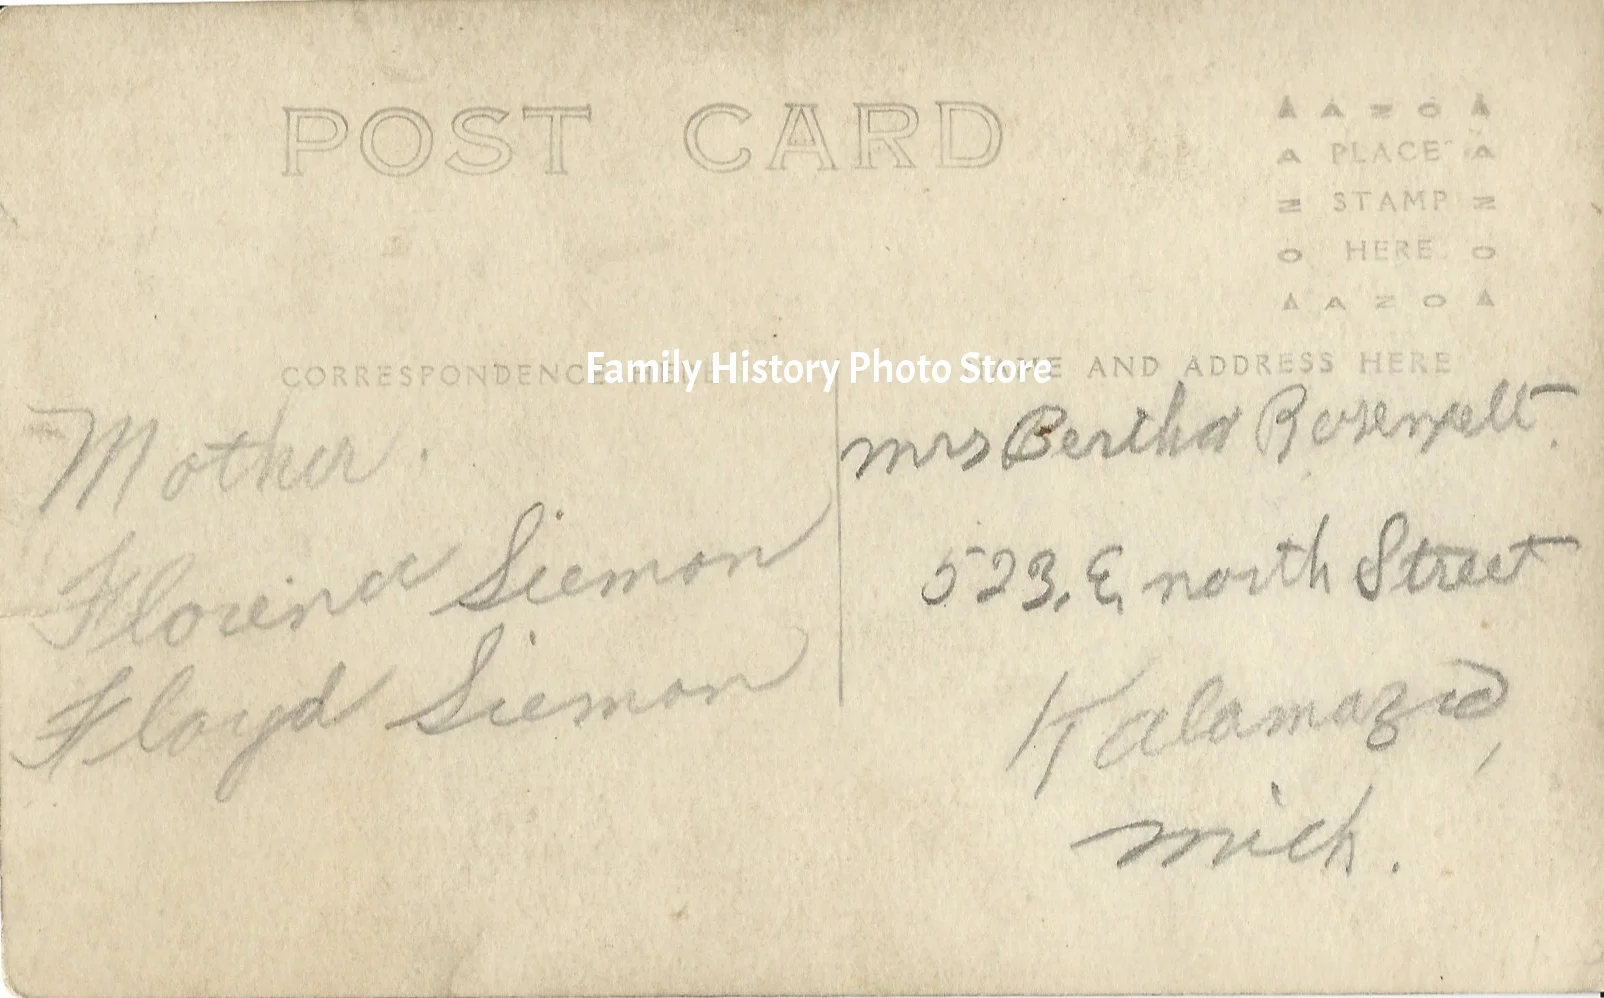 POST CARD
A A Z O A
A PLACE A
Z STAMP Z
O HERE O
A A Z O A
CORRESPONDENCE HERE
Family History Photo Store
NAME AND ADDRESS HERE
Mother.
Florence Siemon
Floyd Siemon
Mrs Bertha
523. E. North Street
Kalamazoo,
Mich.